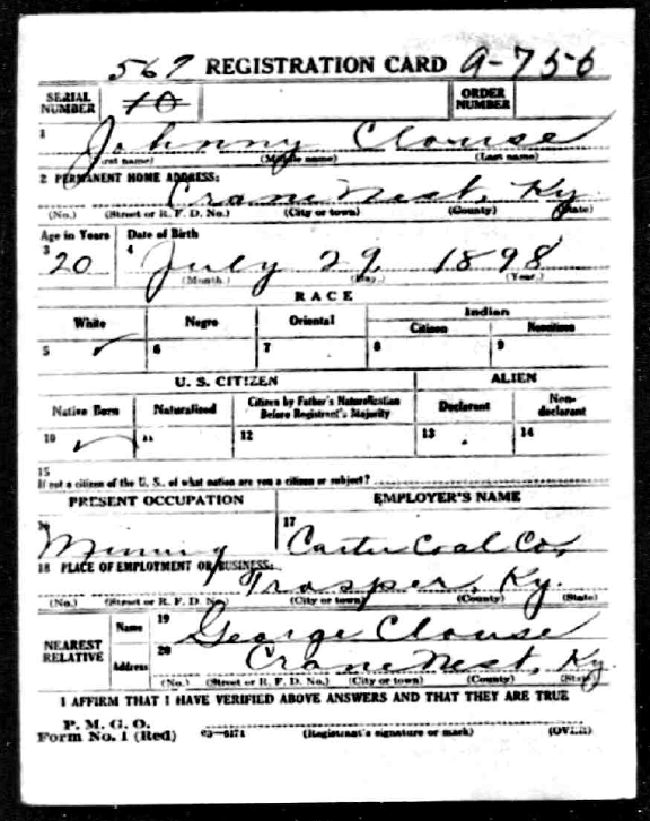 567 REGISTRATION CARD A-756
SERIAL NUMBER 10 ORDER NUMBER
1 Johnny Clouse
(First name) (Middle name) (Last name)
2 PERMANENT HOME ADDRESS:
Crane Nest, Ky.
(No.) (Street or R. F. D. No.) (City or town) (County) (State)
Age in Years Date of Birth
3 20 4 July 29, 1898
(Month.) (Day.) (Year.)
RACE
White Negro Oriental Indian
Citizen Noncitizen
5 ✓ 6 7 8 9
U. S. CITIZEN ALIEN
Native Born Naturalized Citizen by Father's Naturalization Before Registrant's Majority Declarant Non-declarant
10 ✓ 11 12 13 14
15
If not a citizen of the U. S., of what nation are you a citizen or subject?
PRESENT OCCUPATION EMPLOYER'S NAME
16 Mining 17 Carter Coal Co,
18 PLACE OF EMPLOYMENT OR BUSINESS:
Trosper, Ky.
(No.) (Street or R. F. D. No.) (City or town) (County) (State)
NEAREST RELATIVE Name 19 George Clouse
Address 20 Crane Nest, Ky.
(No.) (Street or R. F. D. No.) (City or town) (County) (State)
I AFFIRM THAT I HAVE VERIFIED ABOVE ANSWERS AND THAT THEY ARE TRUE
P. M. G. O.
Form No. 1 (Red) (Registrant's signature or mark) (OVER)